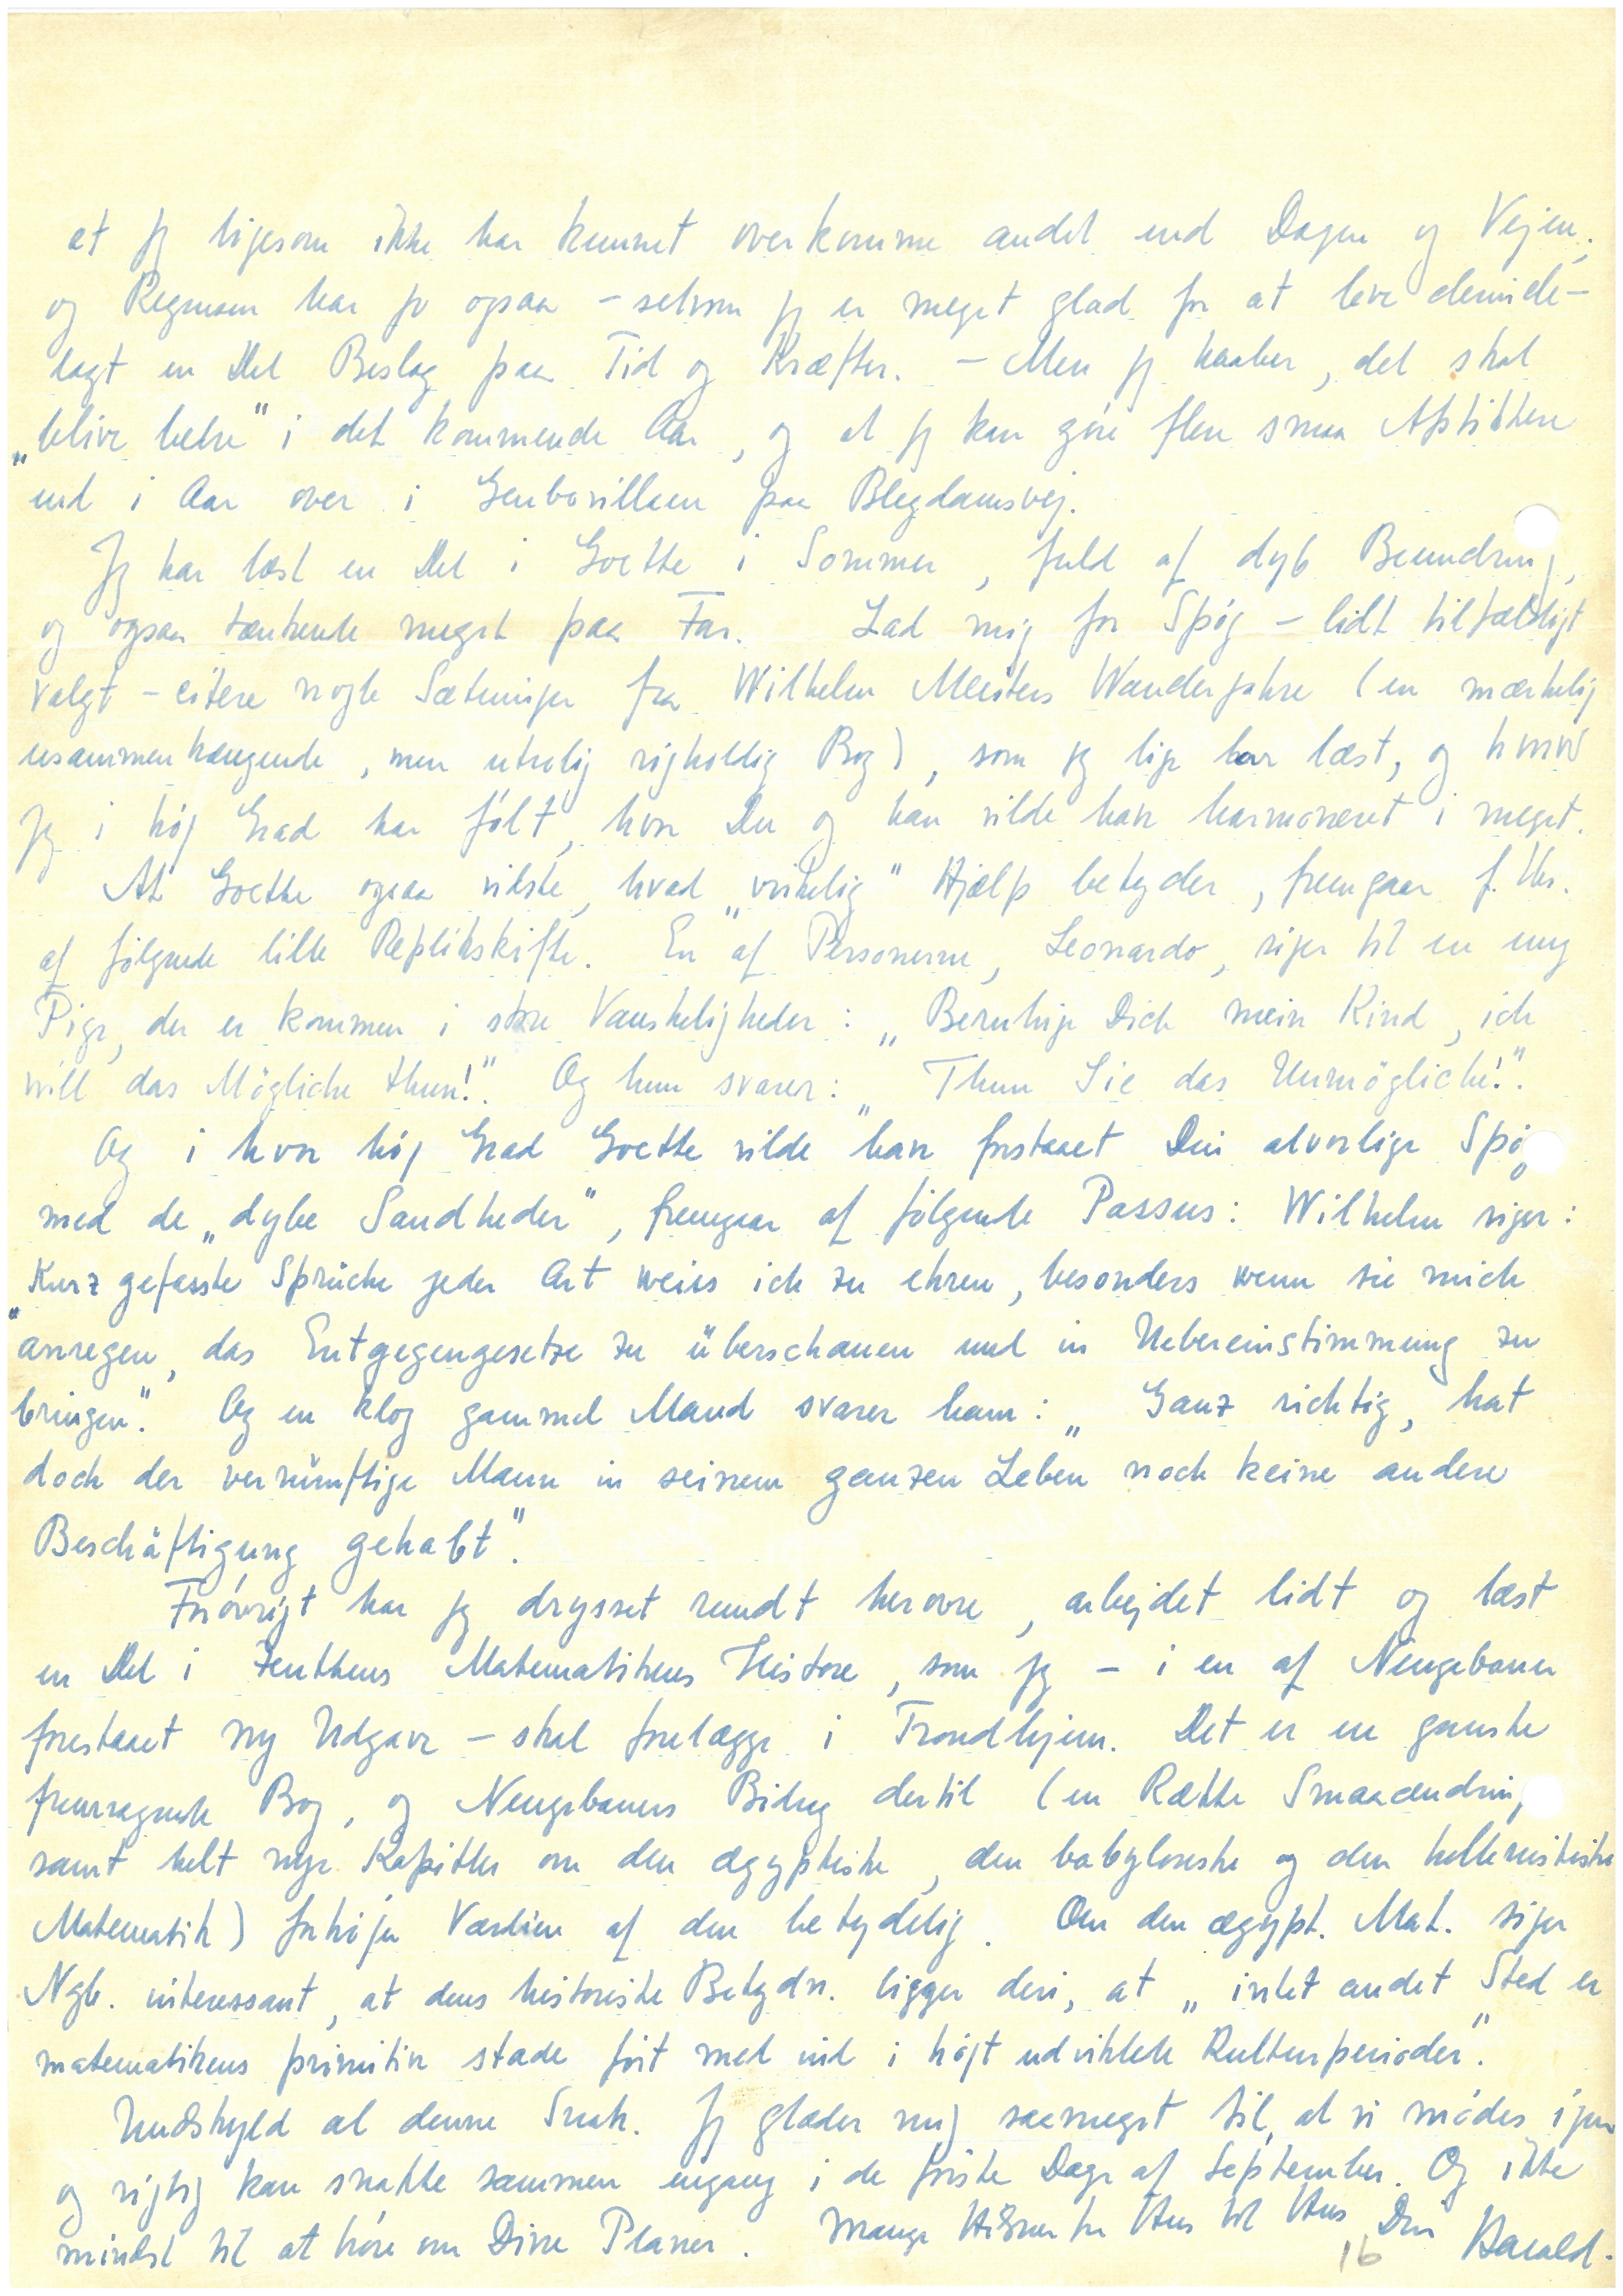 at jeg ligesom ikke har kunnet overkomme andet end Dagen og Vejen,
og Regensen har jo ogsaa – selvom jeg er meget glad for at leve derinde –
lagt en Del Beslag paa Tid og Kræfter. – Men jeg haaber, det skal
„blive bedre" i det kommende Aar, og at jeg kan gøre flere smaa Afstikkere
end i Aar over i Genbovillaen paa Blegdamsvej.
Jeg har læst en Del i Goethe i Sommer, fuld af dyb Beundring,
og ogsaa tænkende meget paa Far. Lad mig for Spøg – lidt tilfældigt
valgt – citere nogle Sætninger fra Wilhelm Meisters Wanderjahre (en mærkelig
usammenhængende, men utrolig righoldig Bog), som jeg lige har læst, og hvor
jeg i høj Grad har følt, hvor Du og han vilde have harmoneret i meget.
At Goethe ogsaa vidste, hvad „virkelig" Hjælp betyder, fremgaar f. Eks.
af følgende lille Replikskifte. En af Personerne, Leonardo, siger til en ung
Pige, der er kommen i store Vanskeligheder: „Beruhige Dich mein Kind, ich
will das Mögliche thun!". Og hun svarer: „Thun Sie das Unmögliche!".
Og i hvor høj Grad Goethe vilde have forstaaet Din alvorlige Spøg
med de „dybe Sandheder", fremgaar af følgende Passus: Wilhelm siger:
„Kurz gefasste Sprüche jeder Art weiss ich zu ehren, besonders wenn sie mich
anregen, das Entgegengesetze zu überschauen und in Uebereinstimmung zu
bringen". Og en klog gammel Mand svarer ham: „Ganz richtig, hat
doch der vernünftige Mann in seinem ganzen Leben noch keine andere
Beschäftigung gehabt".
Forøvrigt har jeg drysset rundt herovre, arbejdet lidt og læst
en Del i Zeuthens Matematikens Historie, som jeg – i en af Neugebauer
forestaaet ny Udgave – skal forelægge i Trondhjem. Det er en ganske
fremragende Bog, og Neugebauers Bidrag dertil (en Række Smaaændring
samt helt nye Kapitler om den ægyptiske, den babyloneske og den hellenistiske
Matematik) forhøjer Værdien af den betydelig. Om den ægypt. Mat. siger
Ngb. interessant, at dens historiske Betydn. ligger deri, at „intet andet Sted er
matematikens primitive stade ført med ind i højt udviklede Kulturperioder".
Undskyld al denne Snak. Jeg glæder mig saameget til, at vi mødes igen
og rigtig kan snakke sammen engang i de første Dage af September. Og ikke
mindst til at høre om Dine Planer. Mange Hilsner fra Hus til Hus Din Harald.
16